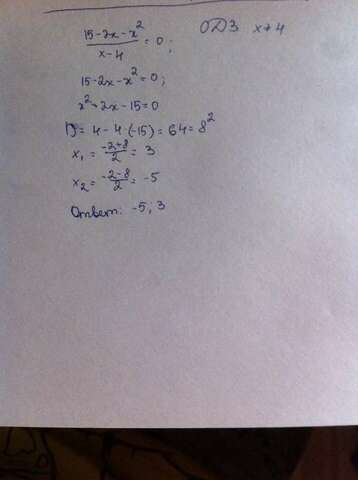 (15-2x-x²)/(x-4) = 0; ОДЗ x≠4
15-2x-x²=0;
x²+2x-15=0
D= 4-4·(-15)=64=8²
x₁ = (-2+8)/2 = 3
x₂ = (-2-8)/2 = -5
Ответ: -5, 3